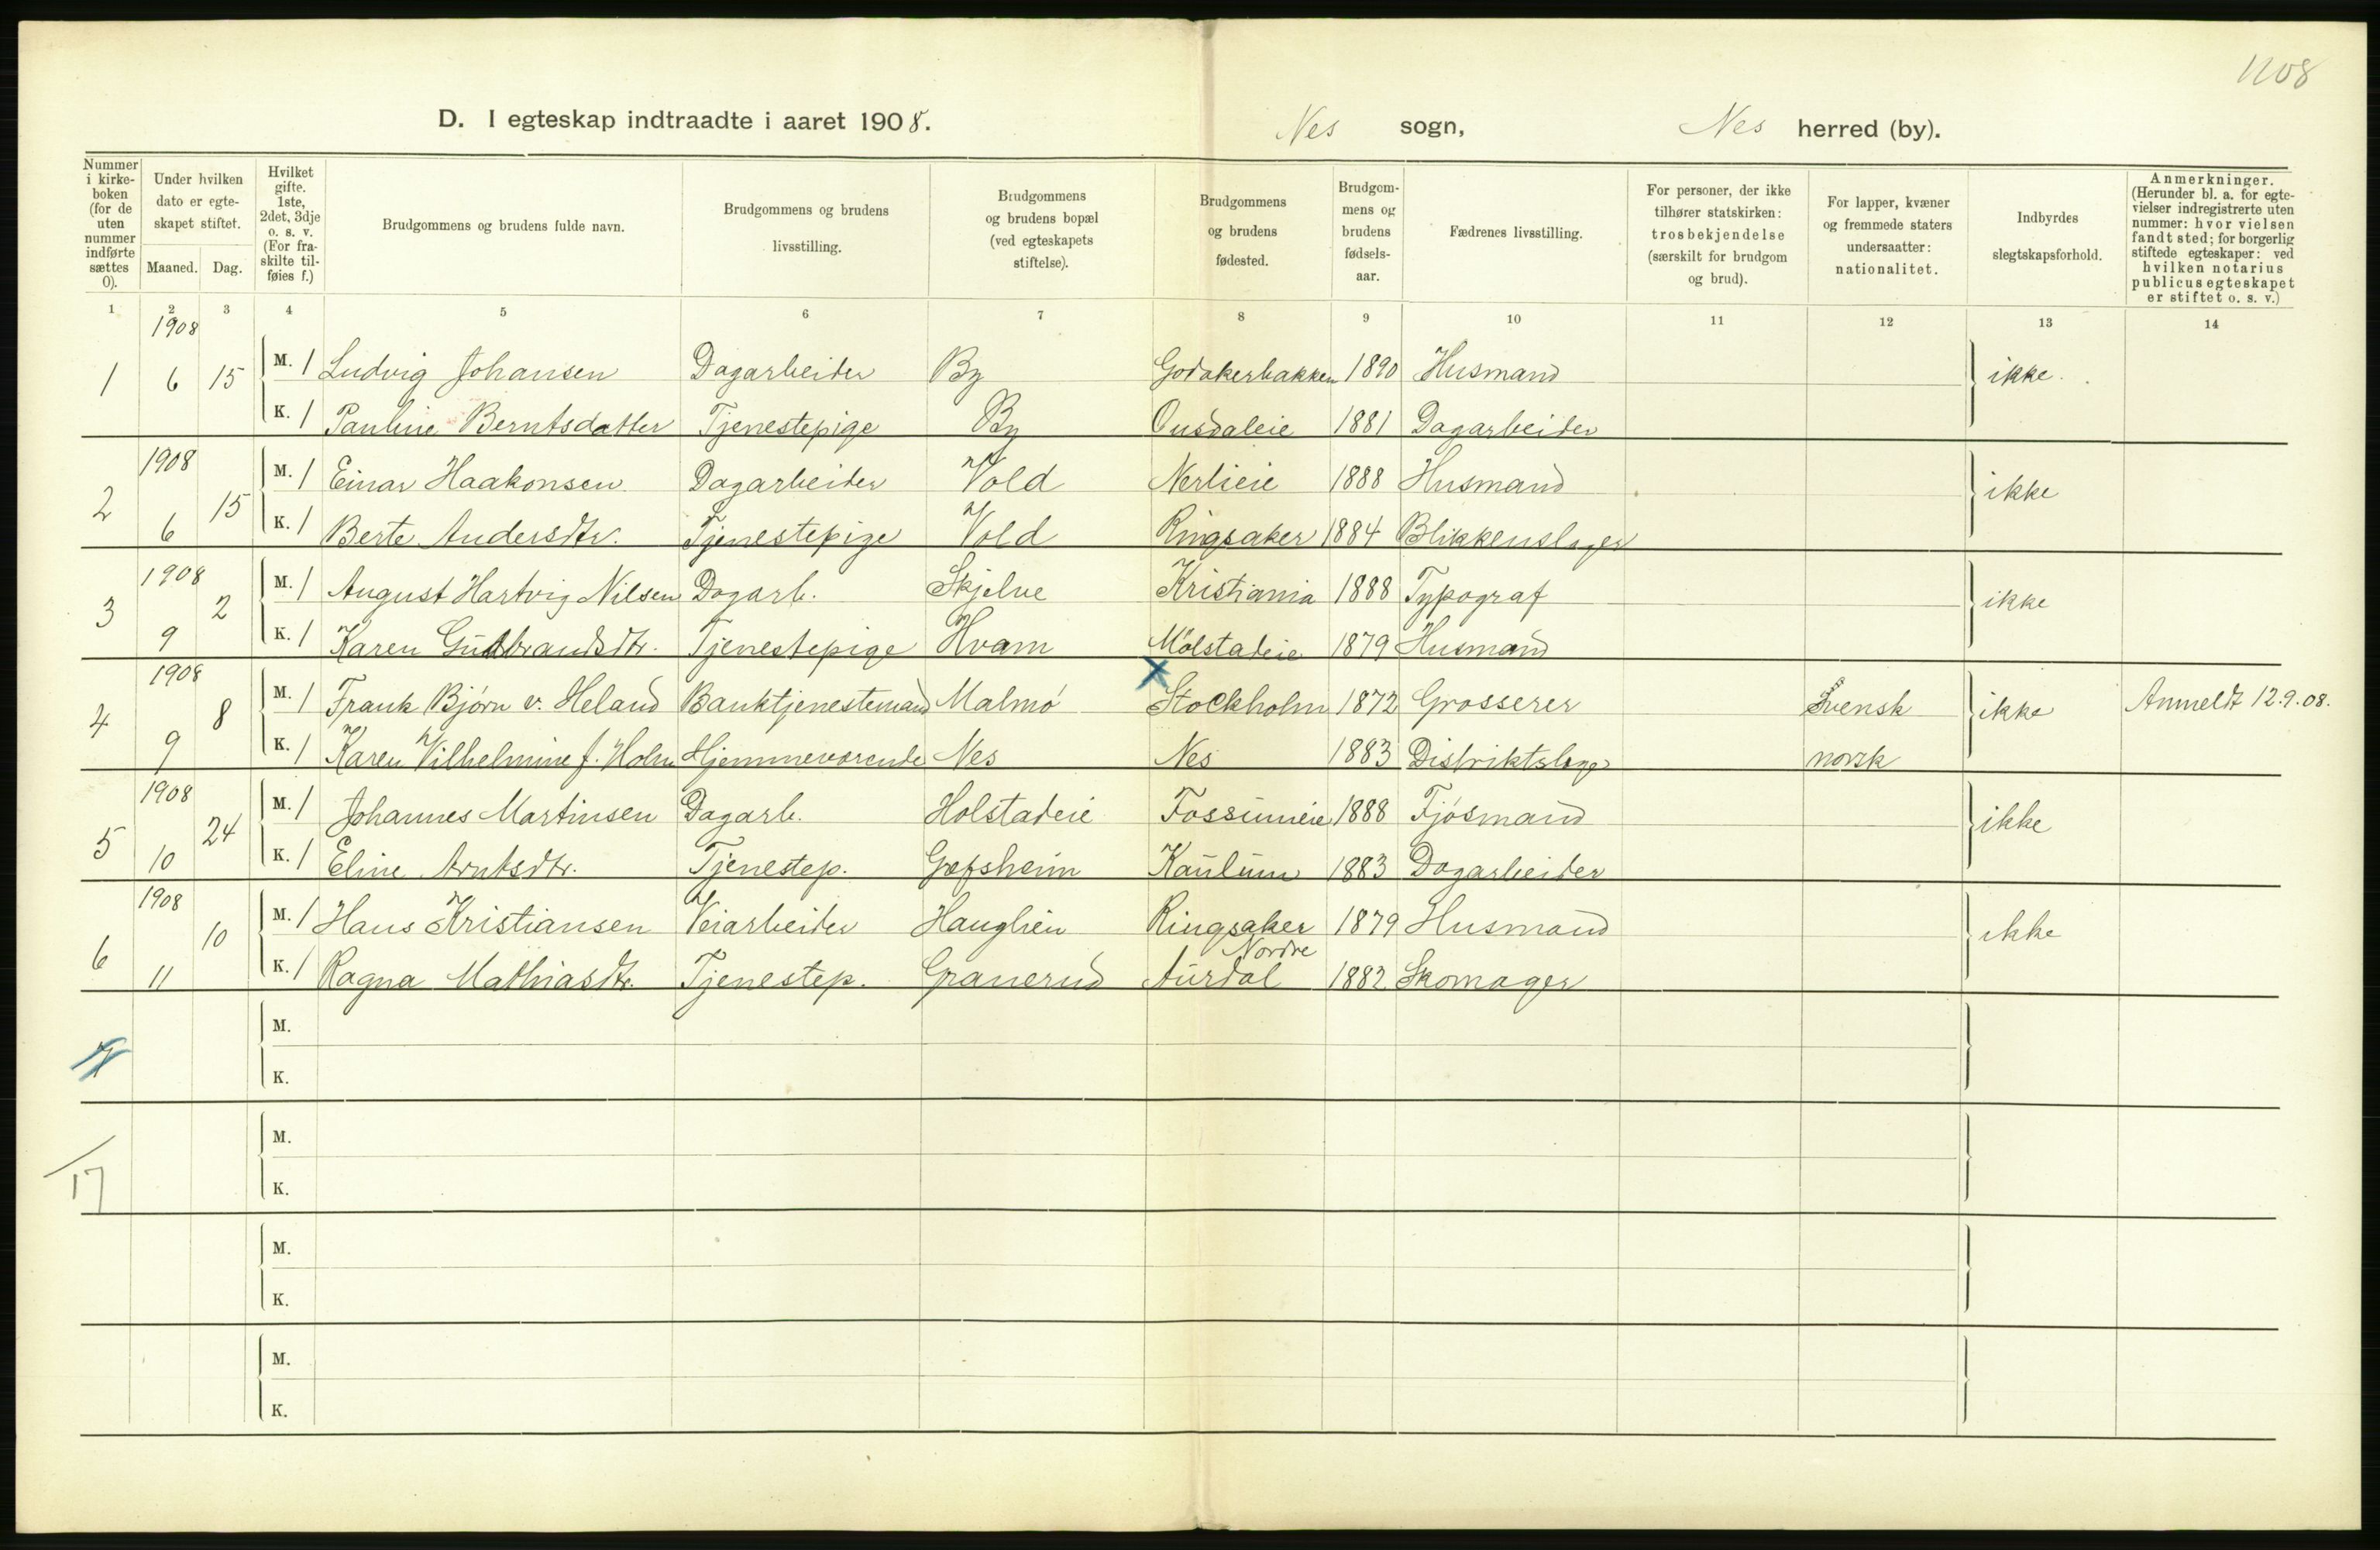 1108
D. I egteskap indtraadte i aaret 1908.
Nes sogn, Nes herred (by).
Nummer i kirke-boken (for de uten nummer indførte sættes 0).
Under hvilken dato er egte-skapet stiftet.
Maaned. Dag.
Hvilket gifte. 1ste, 2det, 3dje o. s. v. (For fra-skilte til-føies f.)
Brudgommens og brudens fulde navn.
Brudgommens og brudens livsstilling.
Brudgommens og brudens bopæl (ved egteskapets stiftelse).
Brudgommens og brudens fødested.
Brudgom-mens og brudens fødsels-aar.
Fædrenes livsstilling.
For personer, der ikke tilhører statskirken: trosbekjendelse (særskilt for brudgom og brud).
For lapper, kvæner og fremmede staters undersaatter: nationalitet.
Indbyrdes slegtskapsforhold.
Anmerkninger. (Herunder bl. a. for egte-vielser indregistrerte uten nummer: hvor vielsen fandt sted; for borgerlig stiftede egteskaper: ved hvilken notarius publicus egteskapet er stiftet o. s. v.)
1 2 3 4 5 6 7 8 9 10 11 12 13 14
1908
1 6 15 M. 1 Ludvig Johansen Dagarbeider By Godakerbakken 1890 Husmand ikke.
K. 1 Pauline Berntsdatter Tjenestepige By Ousdaleie 1881 Dagarbeider
1908
2 6 15 M. 1 Einar Haakonsen. Dagarbeider Vold Nerlieie 1888 Husmand ikke
K. 1 Berte Andersdtr. Tjenestepige Vold Ringsaker 1884 Blikkenslager
1908
3 9 2 M. 1 August Hartvig Nilsen Dagarb. Skjelve Kristiania 1888 Typograf ikke
K. 1 Karen Gudbrandsdtr. Tjenestepige Hvam Molstadeie 1879 Husmand
1908
4 9 8 M. 1 Frank Bjørn v. Heland Banktjenestemand Malmø Stockholm 1872 Grosserer Svensk ikke Anmeldt 12.9.08.
K. 1 Karen Vilhelmine f. Holm Hjemmeværende Nes Nes 1883 Distriktslæge norsk
1908
5 10 24 M. 1 Johannes Martinsen Dagarb. Holstadeie Fossumeie 1888 Fjøsmand ikke
K. 1 Eline Arntsdtr. Tjenestep. Gæfsheim Kaulum 1883 Dagarbeider
1908
6 11 10 M. 1 Hans Kristiansen Veiarbeider Hauglien Ringsaker 1879 Husmand ikke
K. 1 Ragna Mathiasdtr. Tjenestep. Granerud Nordre Aurdal 1882 Skomager
M.
K.
M.
17
K.
M.
K.
M.
K.